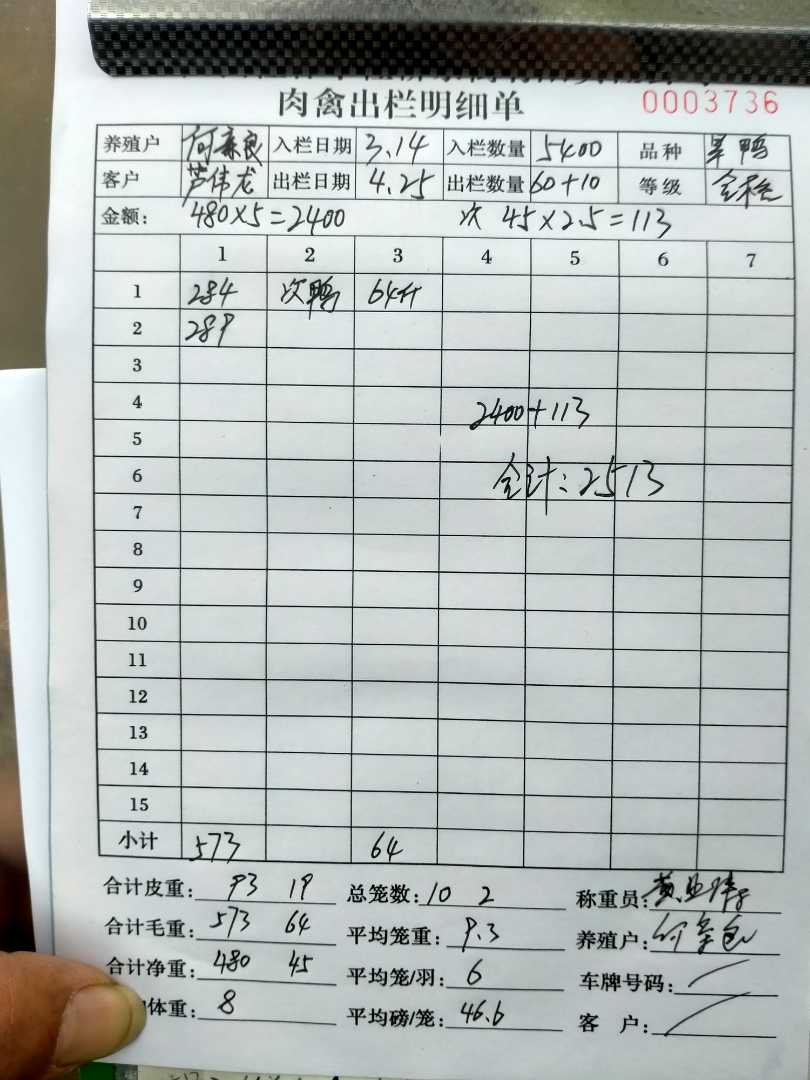 肉禽出栏明细单 0003736
养殖户 入栏日期 3.14 入栏数量 5400 品种 鸭
客户 芦伟龙 出栏日期 4.25 出栏数量 60+10 等级
金额: 480×5=2400 次 45×2.5=113
1 2 3 4 5 6 7
1 284 次鸭 64斤
2 289
3
4 2400+113
5
6 合计:2513
7
8
9
10
11
12
13
14
15
小计 573 64
合计皮重: 93 19 总笼数: 10 2 称重员:
合计毛重: 573 64 平均笼重: 9.3 养殖户:
合计净重: 480 45 平均笼/羽: 6 车牌号码:
体重: 8 平均磅/笼: 46.6 客 户: